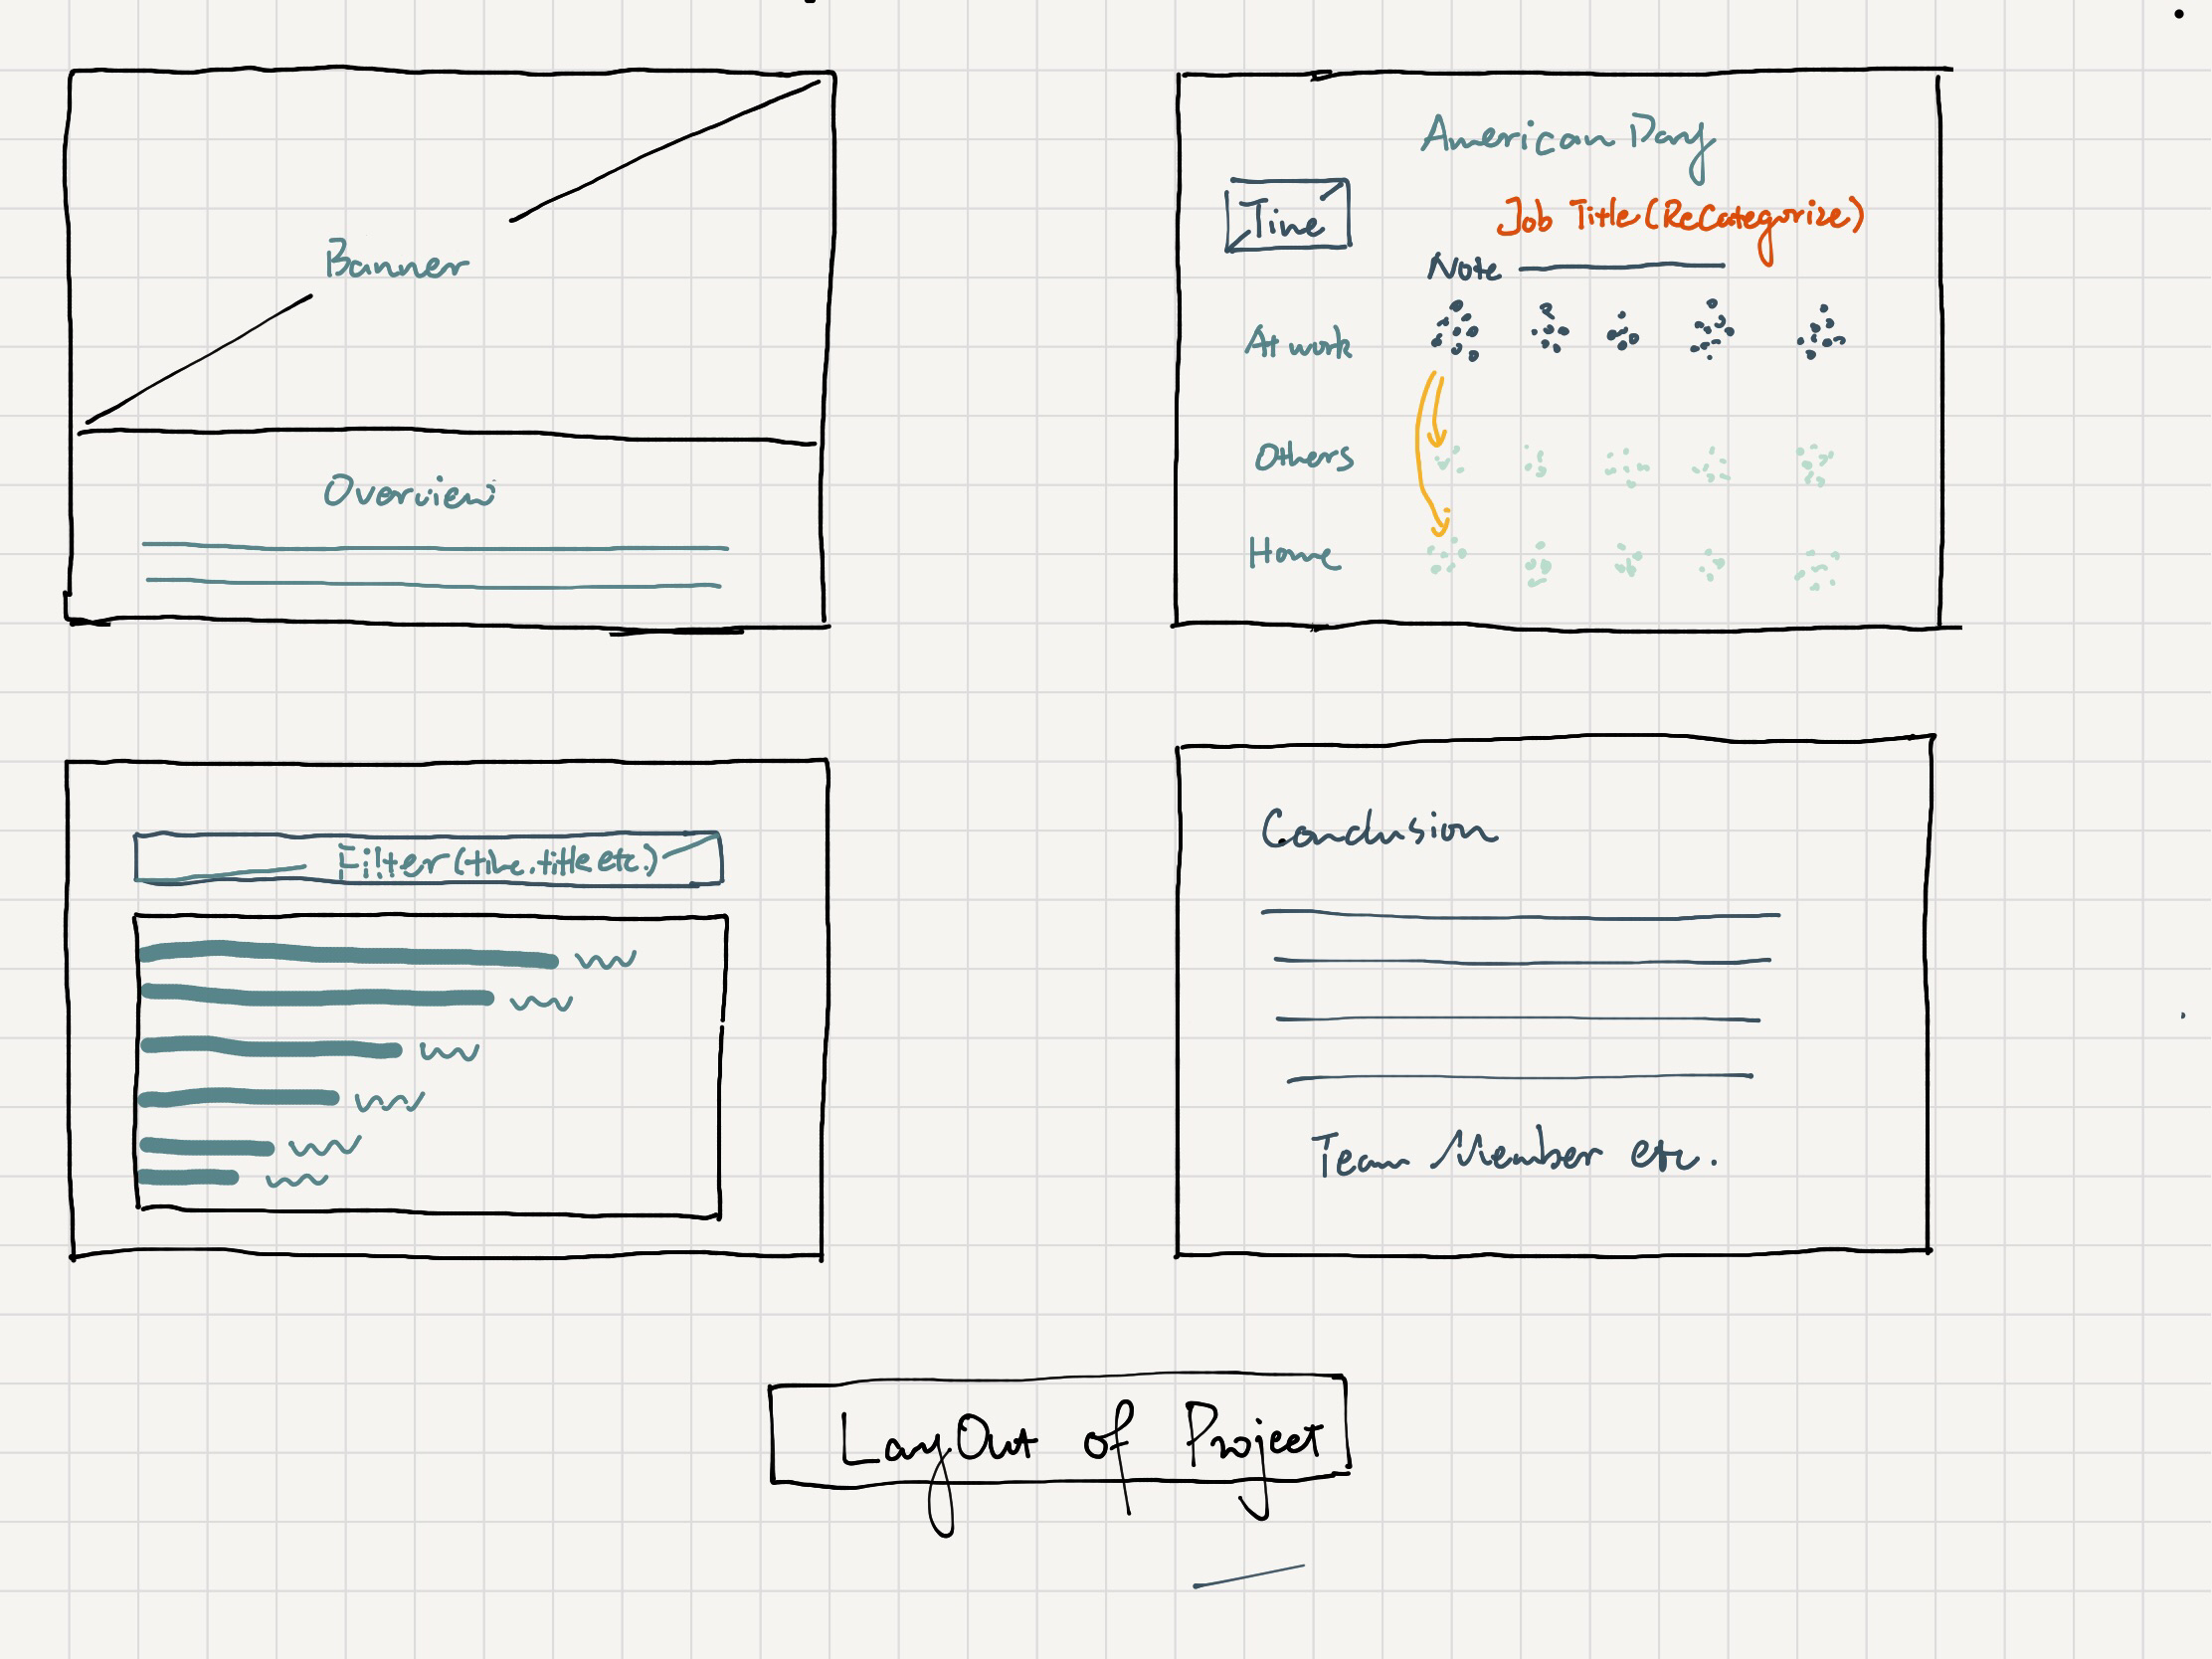 Banner
Overview
American Day
Time
Job Title (ReCategorize)
Note
At work
Others
Home
Filter (time, title etc.)
Conclusion
Team Member etc.
LayOut of Project